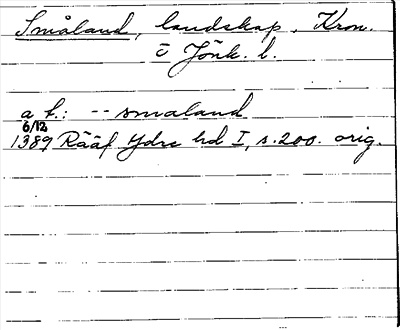 Småland, landskap, Kron.
o Jönk. l.
a f.: -- smaland
6/12
1389 Rääf Ydre hd I, s. 200. orig.